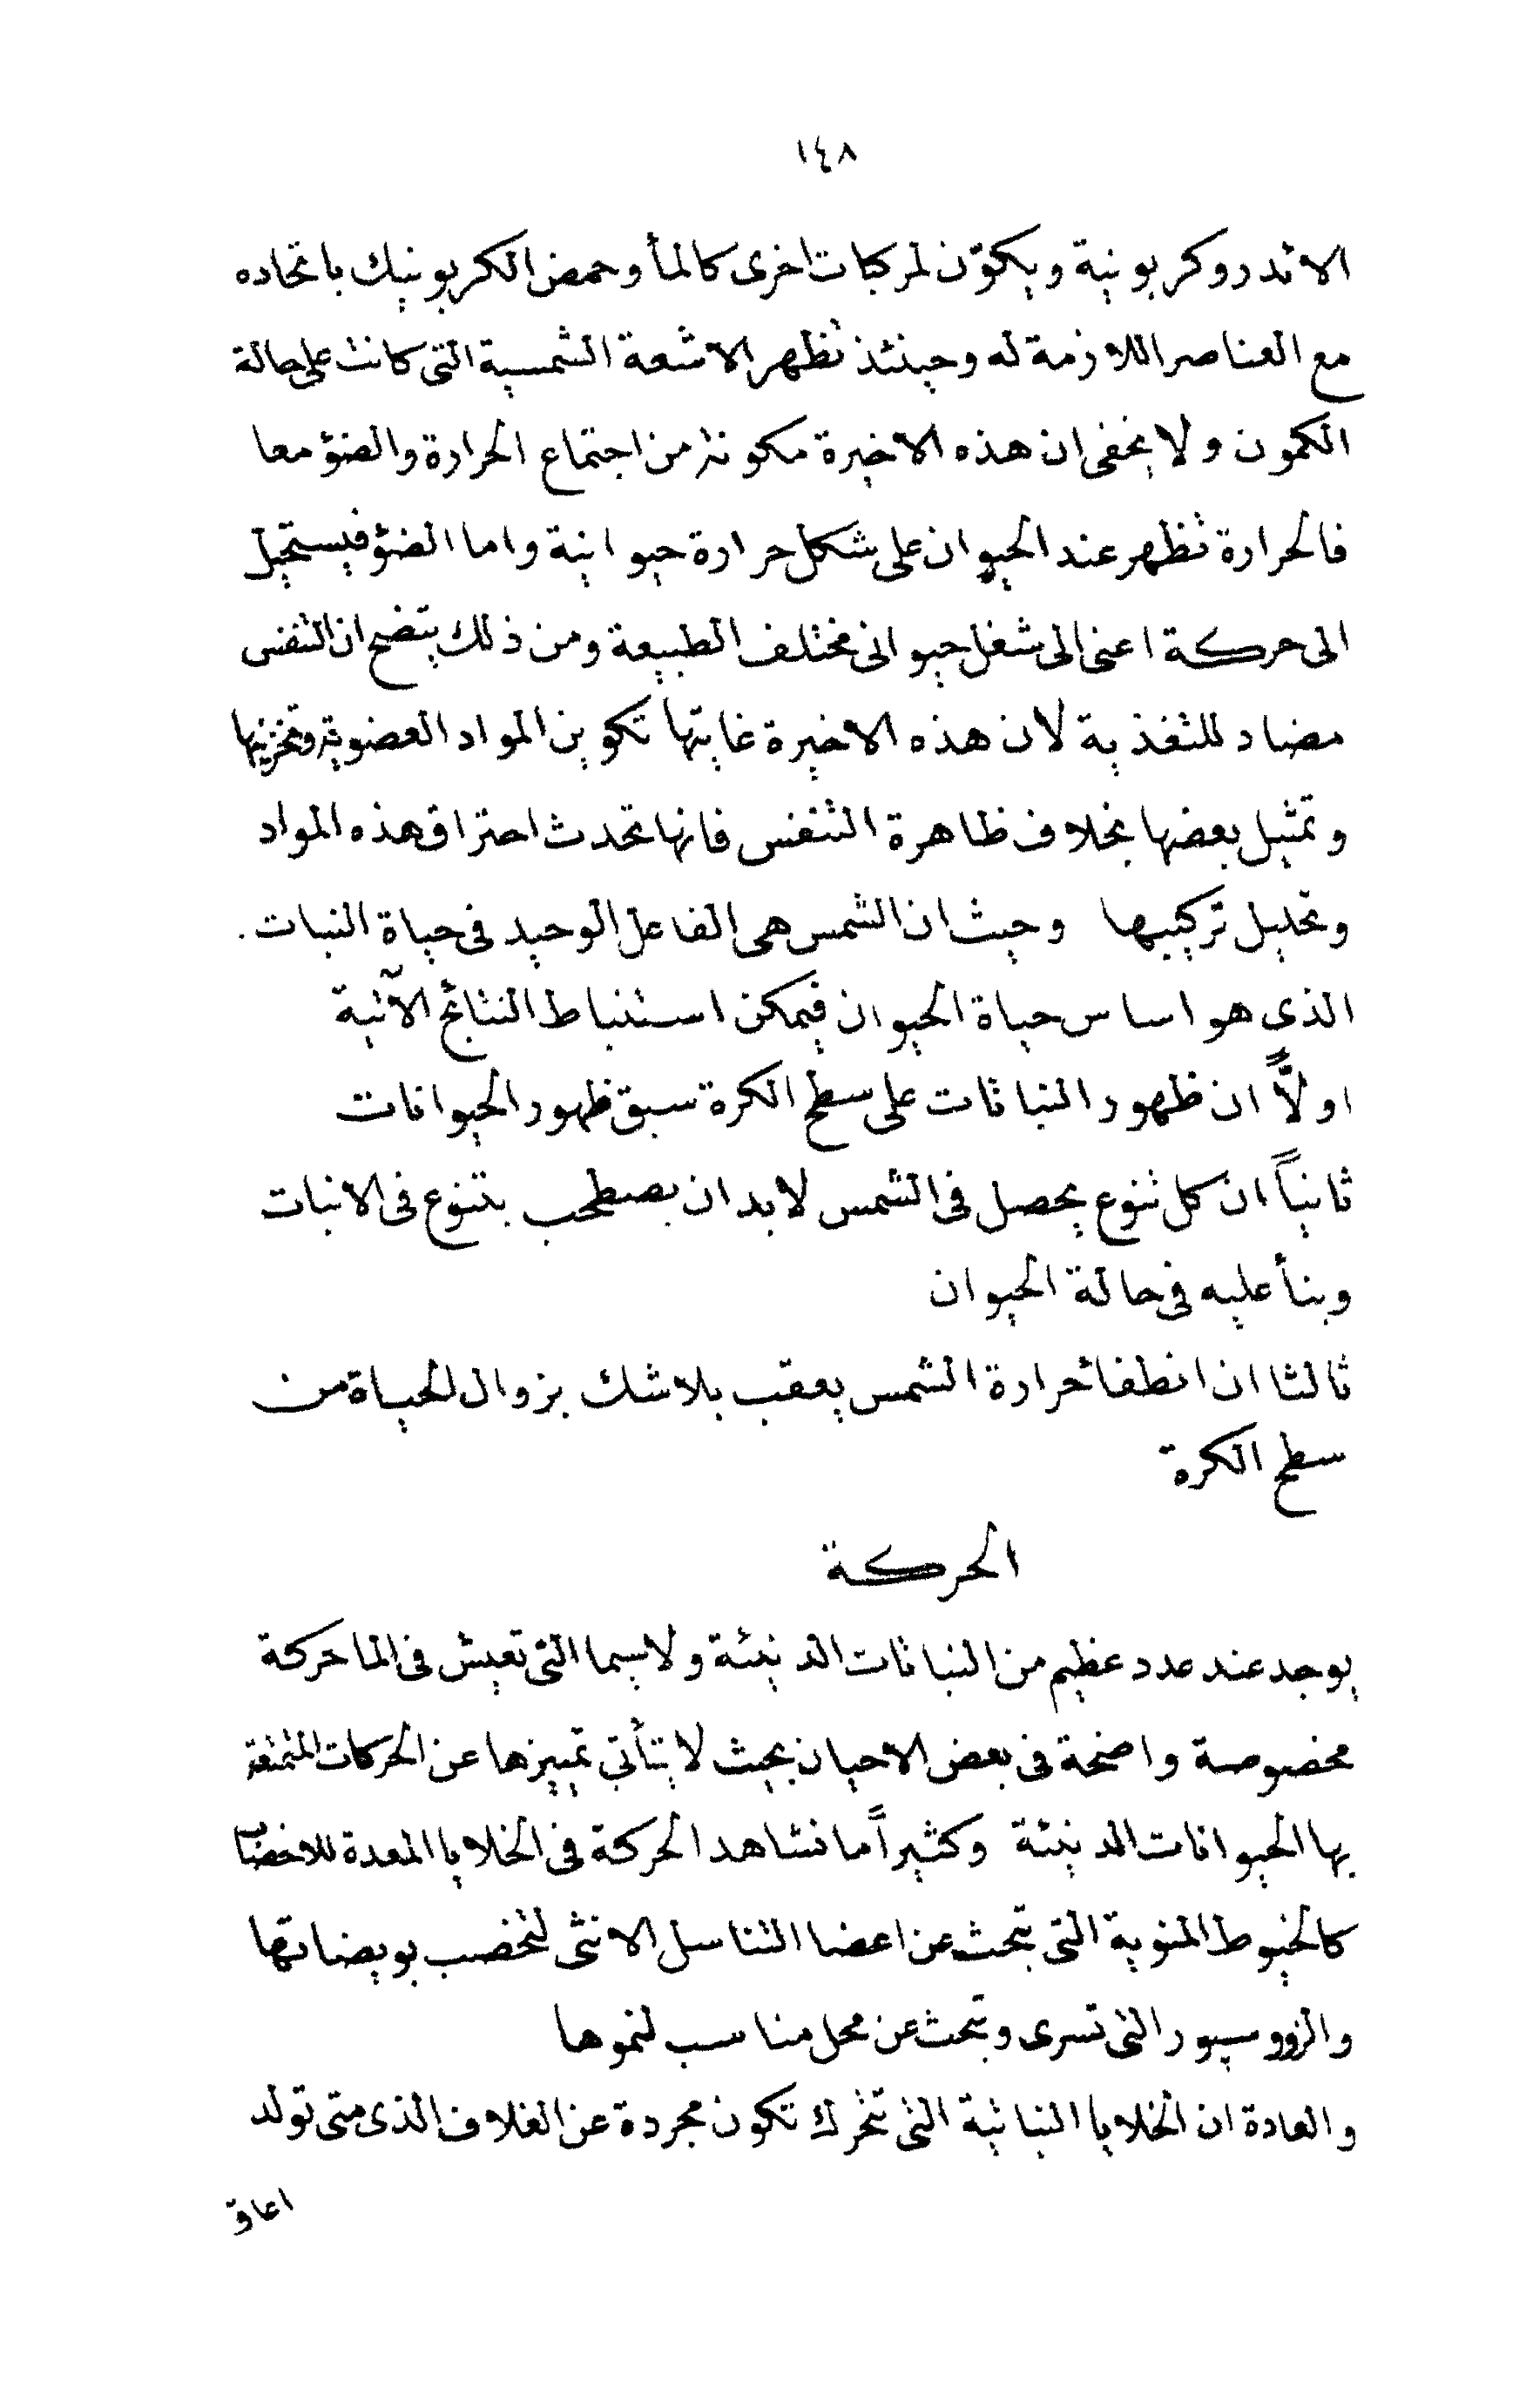 ١٤٨
الاندروكربونية ويكوّن لمركبات اخرى كالمأ وحمض الكربونيك باتحاده
مع العناصر اللازمة له وحينئذ تظهر الاشعة الشمسية التى كانت على حالة
الكمون ولا يخفى ان هذه الاخيرة مكونة من اجتماع الحرارة والضؤ معا
فالحرارة تظهر عند الحيوان على شكل حرارة حيوانية واما الضؤ فيستحيل
الى حركة اعنى الى شغل حيوانى مختلف الطبيعة ومن ذلك يتضح ان التنفس
مضاد للتغذية لان هذه الاخيرة غايتها تكوين المواد العضوية وتخزينها
وتمثيل بعضها بخلاف ظاهرة التنفس فانها تحدث احتراق هذه المواد
وتحليل تركيبها وحيث ان الشمس هى الفاعل الوحيد فى حياة النبات .
الذى هو اساس حياة الحيوان فيمكن استنباط النتائج الآتية
اولاً ان ظهور النباتات على سطح الكرة سبق ظهور الحيوانات
ثانياً ان كل تنوع يحصل فى الشمس لابد ان يصطحب بتنوع فى الانبات
وبنأ عليه فى حالة الحيوان
ثالثا ان انطفأ حرارة الشمس يعقب بلاشك بزوال الحياة من
سطح الكرة
الحركة
يوجد عند عدد عظيم من النباتات الدنيئة ولاسيما التى تعيش فى الما حركة
مخصوصة واضحة فى بعض الاحيان بحيث لا يتأتى تمييزها عن الحركات المتمتعة
بها الحيوانات الدنيئة وكثيراً ما نشاهد الحركة فى الخلايا المعدة للاخصاب
كالخيوط المنوية التى تبحث عن اعضا التناسل الانثى لتخصب بويضاتها
والزووسپور التى تسرى وتبحث عن محل مناسب لنموها
والعادة ان الخلايا النباتية التى تتحرك تكون مجردة عن الغلاف الذى متى تولد
اعاق